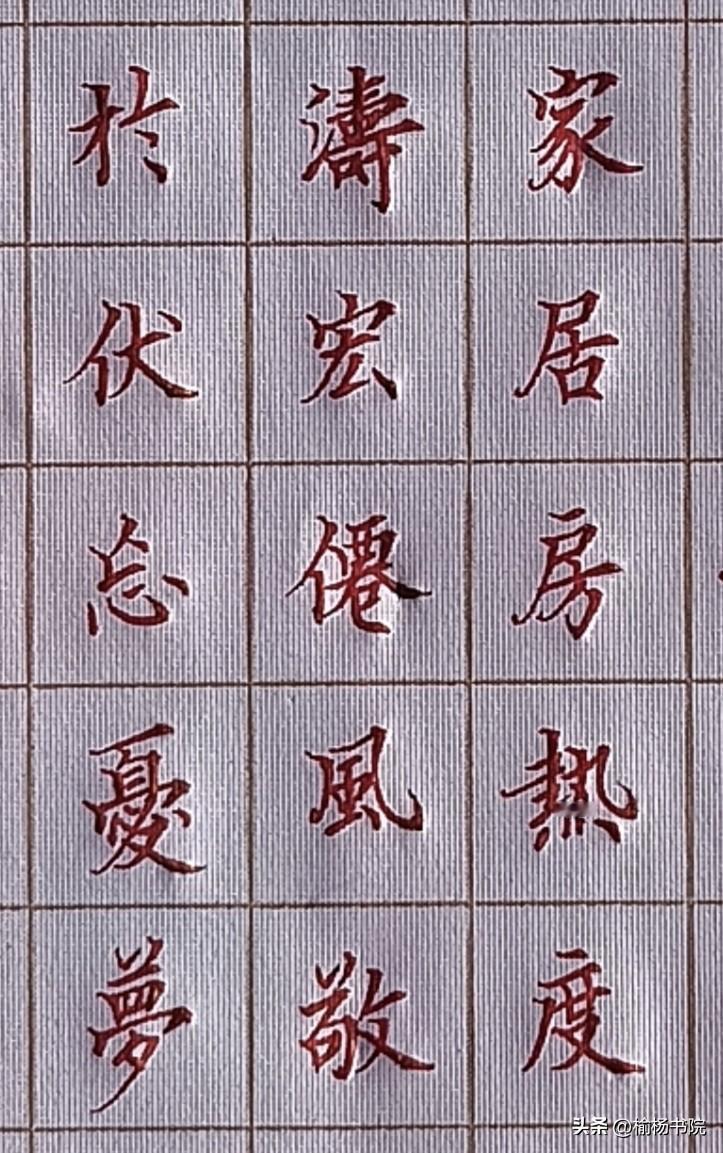 家居房热度
濤宏僊風敬
於伏忘憂夢
头条 @榆杨书院